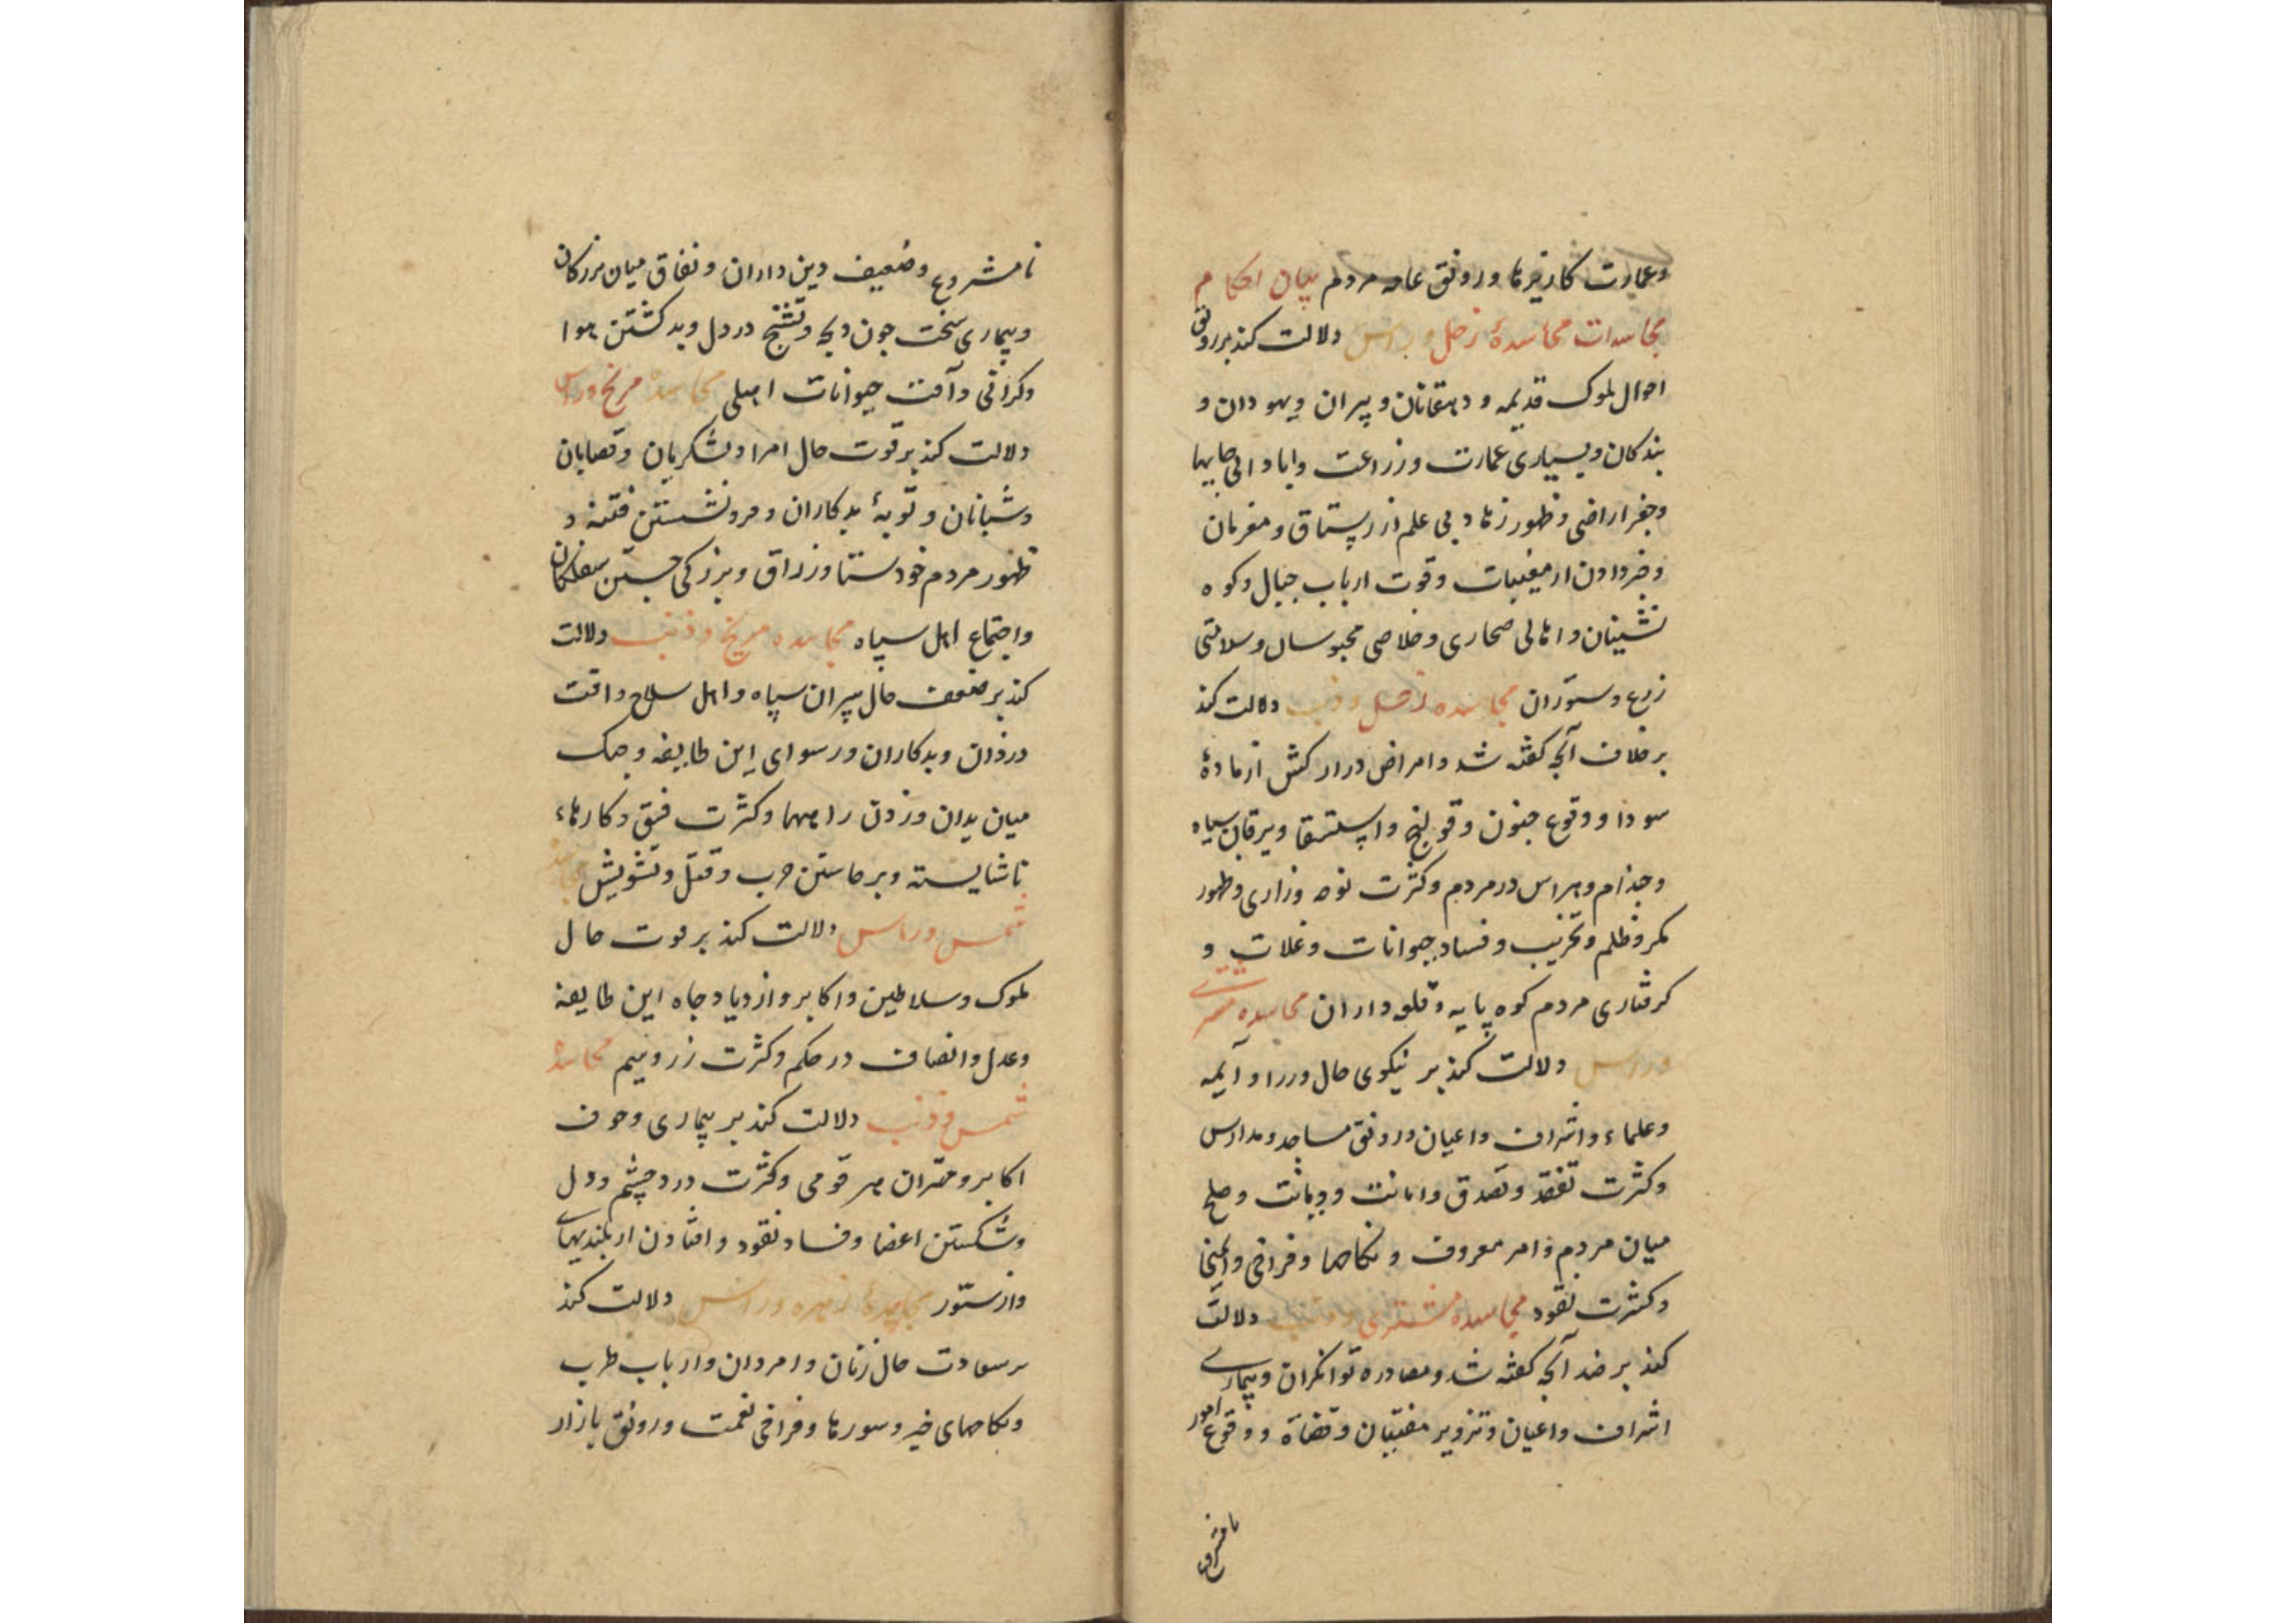 وعمارت کاریزها ورونق عامه مردم بیان احکام
مجاسدات مجاسدهٔ زحل وراس دلالت کند بر رونق
احوال ملوک قدیمه و دهقانان و پیران ویهودان و
بندکان وبسیاری عمارت وزراعت وابادانی جایها
وحفر اراضی وظهور زهاد بی علم از رستاق ومغربان
وخبر دادن از مغیبات وقوت ارباب جبال وکوه
نشینان واهالی صحاری وخلاصی محبوسان وسلامتی
زرع وستوران مجاسده زحل وذنب دلالت کند
بر خلاف آنچه کفته شد وامراض دراز کش از مادهٔ
سودا ووقوع جنون وقولنج واستسقا ویرقان سیاه
وجذام وهراس در مردم وکثرت نوحه وزاری وظهور
مکر وظلم وتخریب وفساد حیوانات وغلات و
کرفتاری مردم کوه پایه وقلعه داران مجاسده مشتری
وراس دلالت کند بر نیکوی حال وزرا وآیمه
وعلماء واشراف واعیان ورونق مساجد ومدارس
وکثرت تفقد وتصدق وامانت ودیانت وصلح
میان مردم وامر معروف ونکاحها وفراخی
وکثرت نقود مجاسده مشتری وذنب دلالت
کند بر ضد آنچه کفته شد ومصادره توانکران وبیماری
اشراف واعیان وتزویر مفتیان وقضاة ووقوع امور
نامشروع
نامشروع وضعیف دین داران ونفاق میان بزرکان
وبیماری سخت چون ذبحه وتشنج در دل وبد کشتن هوا
وکرانی وآفت حیوانات اهلی مجاسدهٔ مریخ وراس
دلالت کند بر قوت حال امرا ولشکریان وقصابان
وشبانان وتوبهٔ بدکاران وفرونشستن فتنه و
ظهور مردم خودستا وزراق وبزرکی جستن سفلکان
واجتماع اهل سپاه مجاسده مریخ وذنب دلالت
کند بر ضعف حال سران سپاه واهل سلاح وافت
دزدان وبدکاران ورسوای این طایفه وجنک
میان بدان وزدن راهها وکثرت فسق وکارهاء
ناشایسته وبرخاستن حرب وقتل وتشویش مجاسده
شمس وراس دلالت کند بر قوت حال
ملوک وسلاطین واکابر وازدیاد جاه این طایفه
وعدل وانصاف در حکم وکثرت زر وسیم مجاسدهٔ
شمس وذنب دلالت کند بر بیماری وخوف
اکابر ومهتران هر قومی وکثرت درد چشم ودل
وشکستن اعضا وفساد نقود وافتادن از بلندیهای
واز ستور مجاسدهٔ زهره وراس دلالت کند
بر سعادت حال زنان وامردان وارباب طرب
ونکاحهای خیر وسورها وفراخی نعمت ورونق بازار